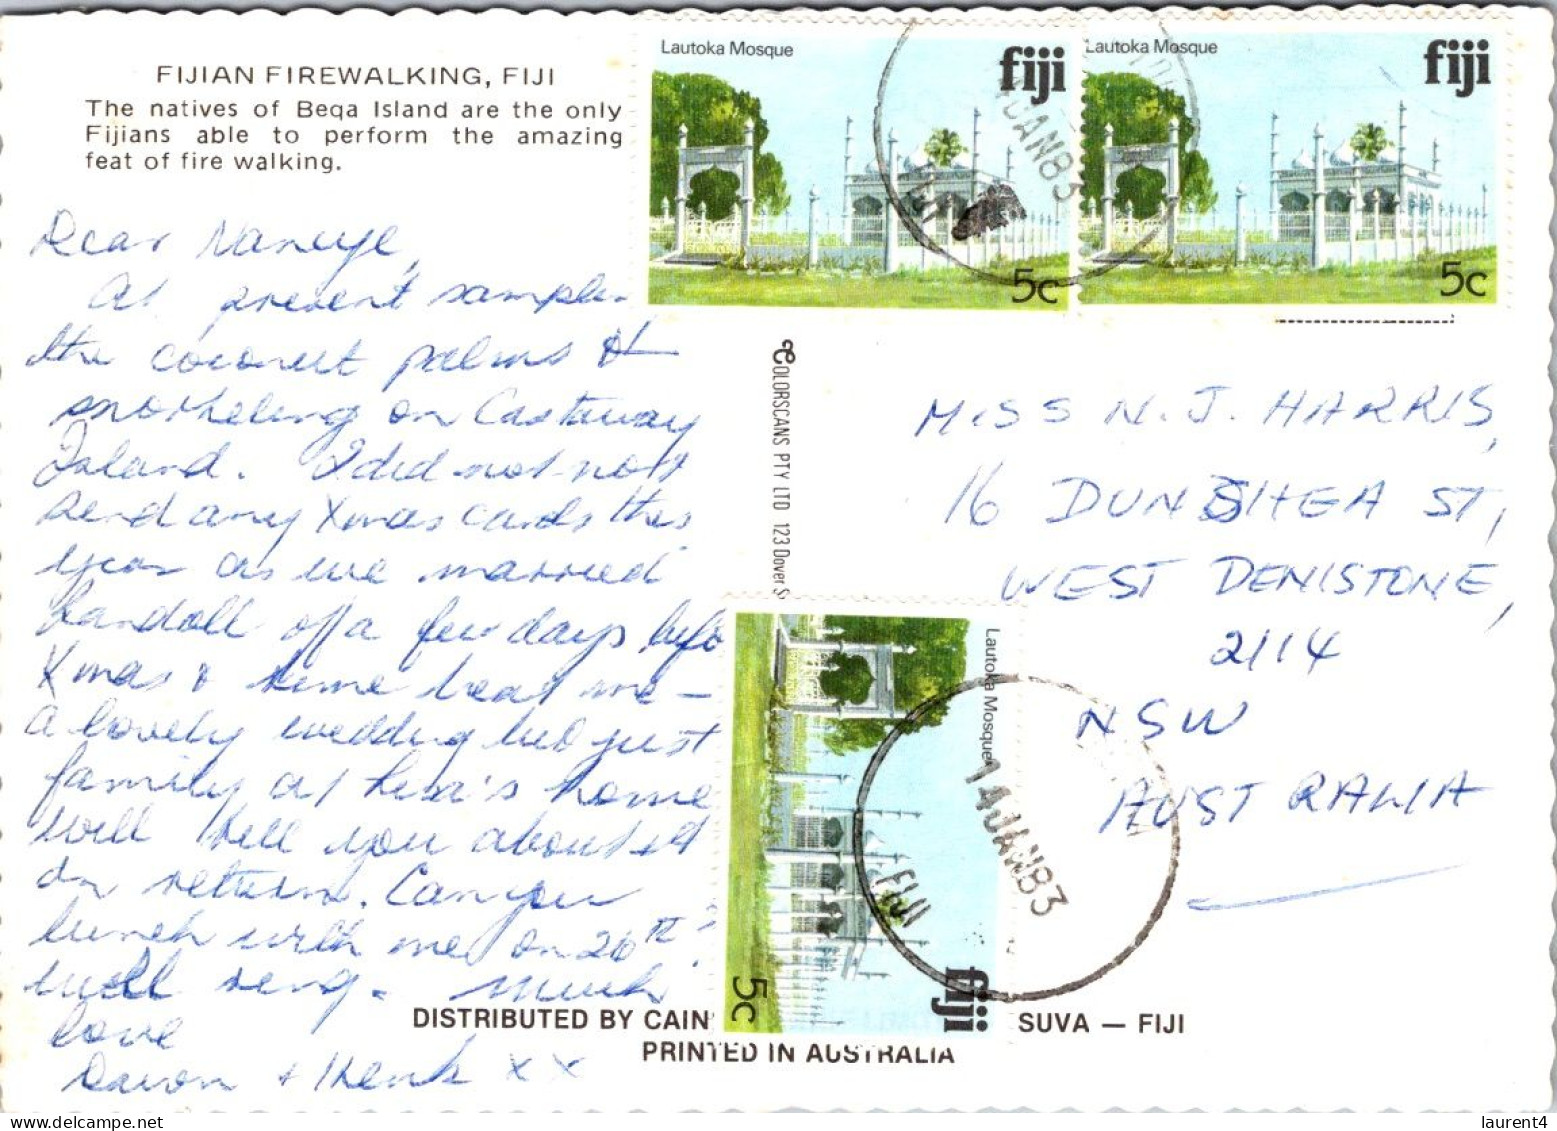 FIJIAN FIREWALKING, FIJI
The natives of Beqa Island are the only
Fijians able to perform the amazing
feat of fire walking.
Dear
At present
the coconut palms &
snorkeling on Castaway
Island. I did not not
send any Xmas cards this
year as we married
Randall off a few days befo
Xmas & time beat me —
a lovely wedding but just
family at Lisa's home
will tell you about it
on return. Can you
lunch with me on 26th?
will ring. Much
love
XX
Lautoka Mosque
fiji
5c
JAN83
Lautoka Mosque
fiji
5c
COLORSCANS PTY LTD 123 Dover S
MISS N. J. HARRIS,
16 ST,
WEST DENISTONE,
2114
NSW
AUSTRALIA
Lautoka Mosque
fiji
5c
14JAN83
FIJI
DISTRIBUTED BY CAIN SUVA — FIJI
PRINTED IN AUSTRALIA
laurent4